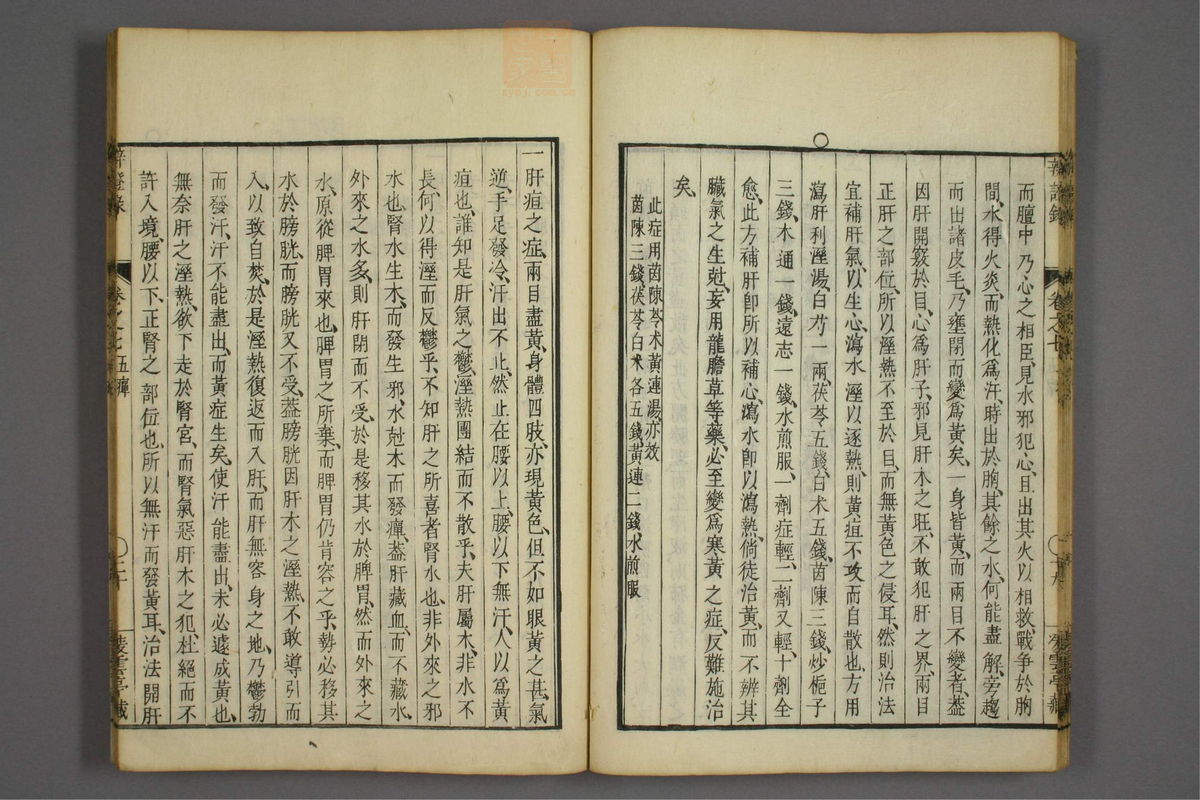 而膻中乃心之相臣見水邪犯心且出其火以相救戰爭於胸
間水得火炎而熱化爲汗時出於胸其餘之水何能盡解旁趨
而出諸皮毛乃壅閉而變爲黃矣一身皆黃而兩目不變者蓋
因肝開竅於目心爲肝子邪見肝木之旺不敢犯肝之界兩目
正肝之部位所以溼熱不至於目而無黃色之侵耳然則治法
宜補肝氣以生心瀉水溼以逐熱則黃疸不攻而自散也方用
瀉肝利溼湯白芍一兩茯苓五錢白术五錢茵陳三錢炒梔子
三錢木通一錢遠志一錢水煎服一劑症輕二劑又輕十劑全
愈此方補肝卽所以補心瀉水卽以瀉熱倘徒治黃而不辨其
臟氣之生尅妄用龍膽草等藥必至變爲寒黃之症反難施治
矣
此症用茵陳苓术黃連湯亦效
茵陳三錢茯苓白术各五錢黃連二錢水煎服
一肝疸之症兩目盡黃身體四肢亦現黃色但不如眼黃之甚氣
逆手足發冷汗出不止然止在腰以上腰以下無汗人以爲黃
疸也誰知是肝氣之鬱溼熱團結而不散乎夫肝屬木非水不
長何以得溼而反鬱乎不知肝之所喜者腎水也非外來之邪
水也腎水生木而發生邪水尅木而發癉蓋肝藏血而不藏水
外來之水多則肝閉而不受於是移其水於脾胃然而外來之
水原從脾胃來也脾胃之所棄而脾胃仍肯容之乎勢必移其
水於膀胱而膀胱又不受蓋膀胱因肝木之溼熱不敢導引而
入以致自焚於是溼熱復返而入肝而肝無容身之地乃鬱勃
而發汗汗不能盡出而黃症生矣使汗能盡出未必遽成黃也
無奈肝之溼熱欲下走於腎宮而腎氣惡肝木之犯杜絕而不
許入境腰以下正腎之部位也所以無汗而發黃耳治法開肝
卷之七 五癉